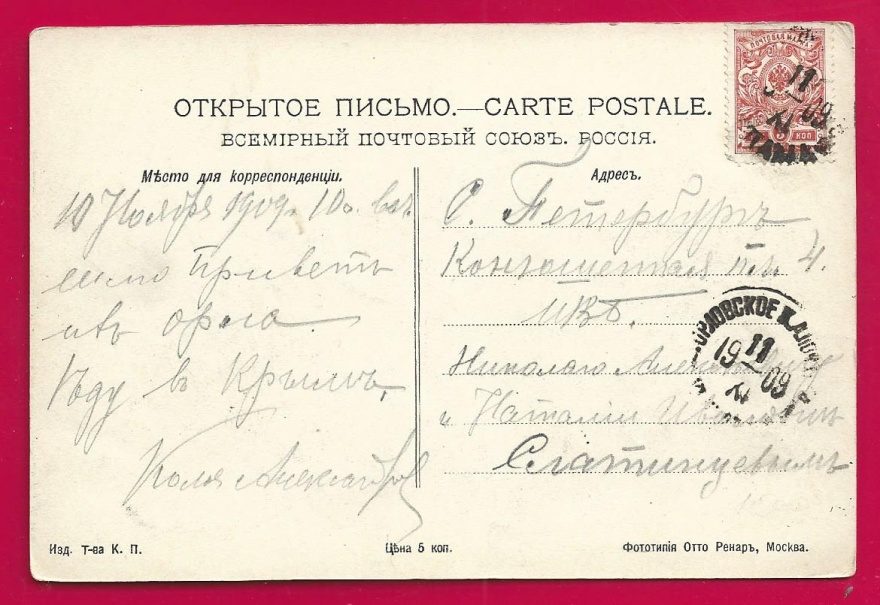 ОТКРЫТОЕ ПИСЬМО.—CARTE POSTALE.
ВСЕМІРНЫЙ ПОЧТОВЫЙ СОЮЗЪ. РОССІЯ.
Мѣсто для корреспонденціи.
10 Ноября 1909г.
шлю Привѣтъ
изъ орла
ѣду въ Крымъ
Коля Александров
Адресъ.
С. Петербургъ
Конюшенная пл. 4.
кв.
Николаю
и Наталіи Ивановнѣ
Слатинцевымъ
ПОЧТОВАЯ МАРКА
КОП
11
09
ОРЛОВСКОЕ
19 11
09
Изд. Т-ва К. П.
Цѣна 5 коп.
Фототипія Отто Ренаръ, Москва.